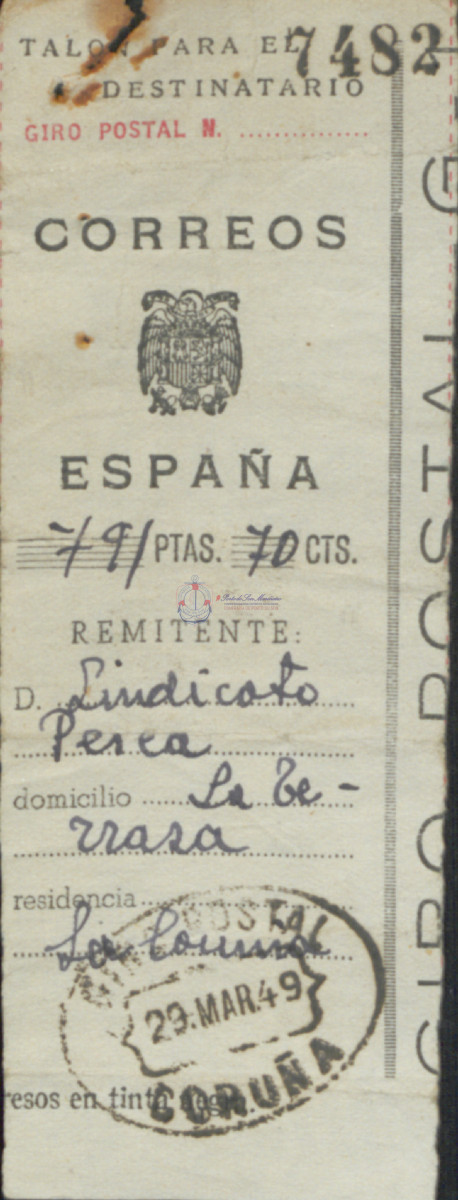 TALON PARA EL 7482
DESTINATARIO
GIRO POSTAL N. ...............
CORREOS
ESPAÑA
791 PTAS. 70 CTS.
REMITENTE:
D. Sindicato
Pesca
domicilio La Te-
rraza
residencia
La Coruña
GIRO POSTAL
29.MAR.49
CORUÑA
resos en tinta negra.
GIRO POSTAL